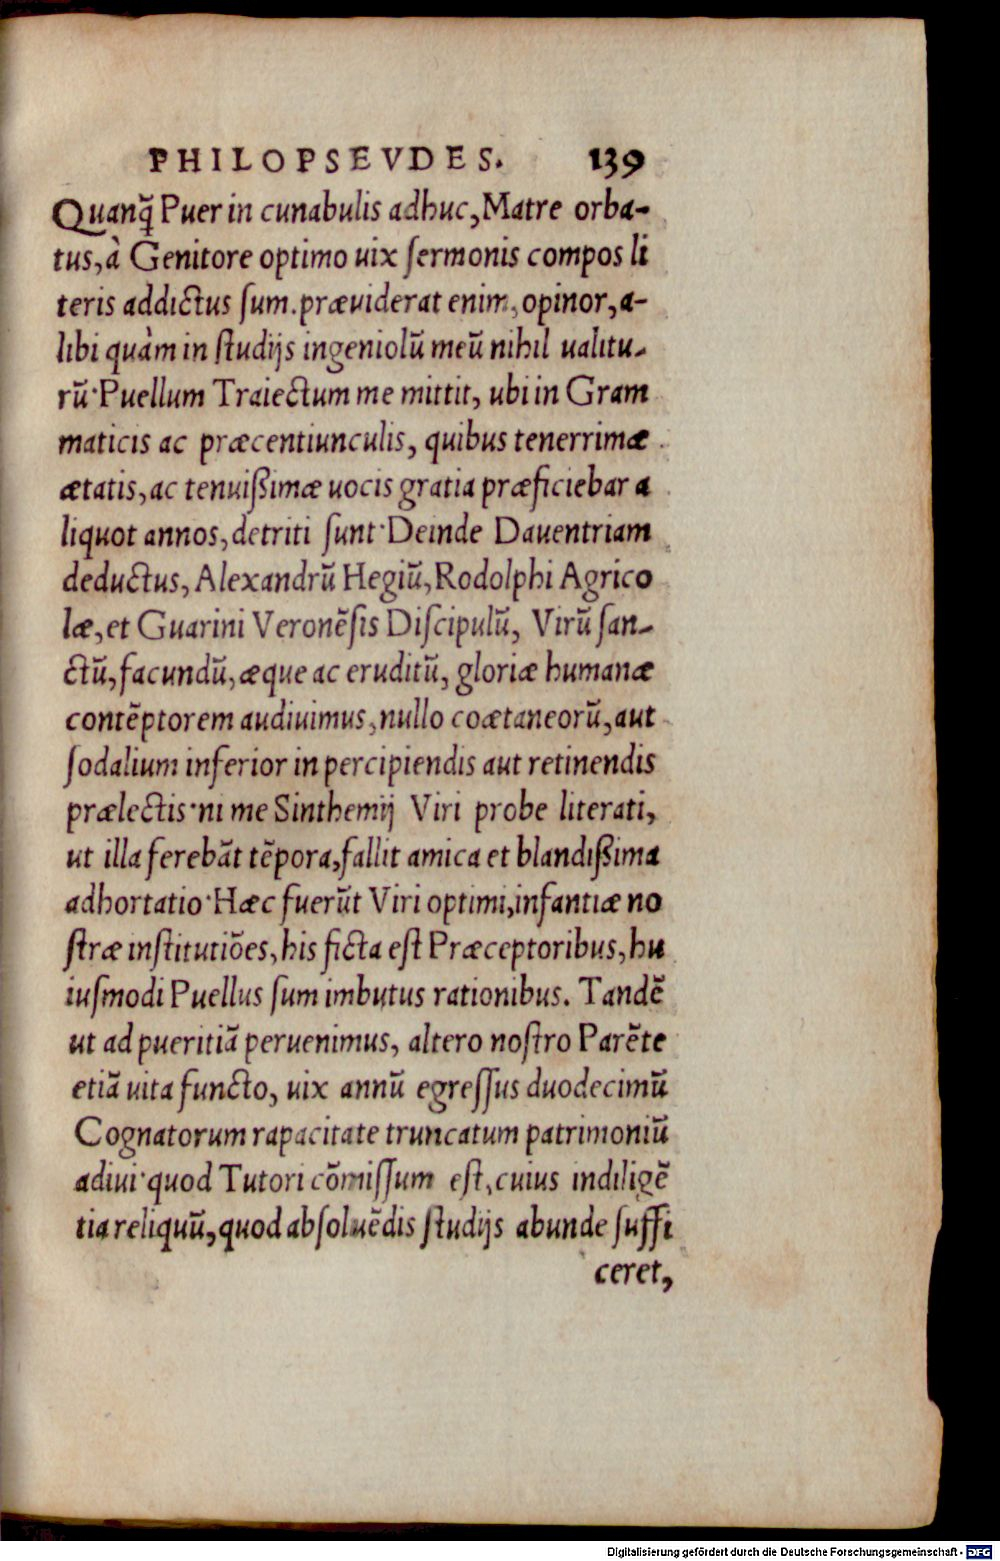 PHILOPSEVDES. 139
Quanq̃ Puer in cunabulis adhuc, Matre orba-
tus, à Genitore optimo uix ſermonis compos li
teris addictus ſum. præuiderat enim, opinor, a-
libi quàm in ſtudijs ingeniolũ meũ nihil ualitu-
rũ·Puellum Traiectum me mittit, ubi in Gram
maticis ac præcentiunculis, quibus tenerrimæ
ætatis, ac tenuißimæ uocis gratia præficiebar a
liquot annos, detriti ſunt·Deinde Dauentriam
deductus, Alexandrũ Hegiũ, Rodolphi Agrico
læ, et Guarini Veronẽſis Diſcipulũ, Virũ ſan-
ctũ, facundũ, æque ac eruditũ, gloriæ humanæ
contẽptorem audiuimus, nullo coætaneorũ, aut
ſodalium inferior in percipiendis aut retinendis
prælectis·ni me Sinthemij Viri probe literati,
ut illa ferebãt tẽpora, fallit amica et blandißima
adhortatio·Hæc fuerũt Viri optimi, infantiæ no
ſtræ inſtitutiões, his ficta eſt Præceptoribus, hu
iuſmodi Puellus ſum imbutus rationibus. Tandẽ
ut ad pueritiã peruenimus, altero noſtro Parẽte
etiã uita functo, uix annũ egreſſus duodecimũ
Cognatorum rapacitate truncatum patrimoniũ
adiui·quod Tutori cõmiſſum eſt, cuius indiligẽ
tia reliquũ, quod abſoluẽdis ſtudijs abunde ſuffi
ceret,
Digitalisierung gefördert durch die Deutsche Forschungsgemeinschaft - DFG